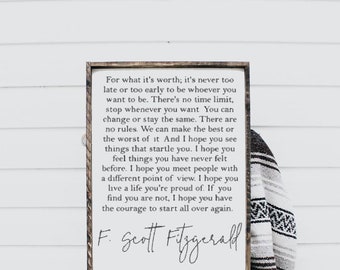 For what it's worth; it's never too
late or too early to be whoever you
want to be. There's no time limit,
stop whenever you want. You can
change or stay the same. There are
no rules. We can make the best or
the worst of it. And I hope you see
things that startle you. I hope you
feel things you have never felt
before. I hope you meet people with
a different point of view. I hope you
live a life you're proud of. If you
find you are not, I hope you have
the courage to start all over again.
F. Scott Fitzgerald